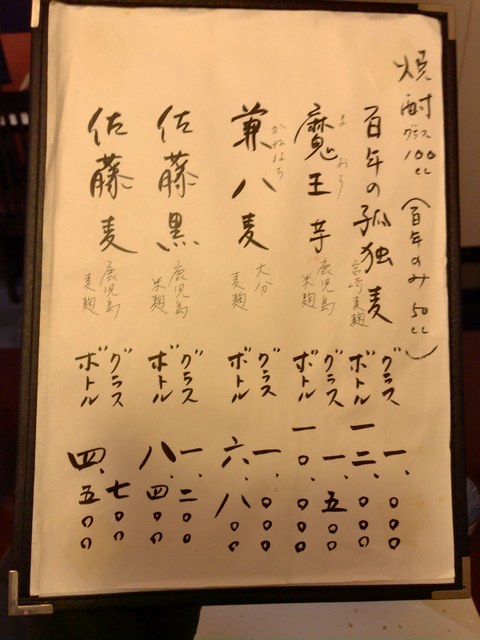 焼酎 グラス 100cc (百年のみ 50cc)
百年の孤独 麦
宮崎 麦麹
グラス 一、〇〇〇
ボトル 一二、〇〇〇
魔王 芋
まおう
鹿児島
米麹
グラス 一、五〇〇
ボトル 一〇、〇〇〇
兼八 麦
かねはち
大分
麦麹
グラス 一、〇〇〇
ボトル 六、八〇〇
佐藤 黒
鹿児島
米麹
グラス 一、二〇〇
ボトル 八、四〇〇
佐藤 麦
鹿児島
麦麹
グラス 七〇〇
ボトル 四、五〇〇